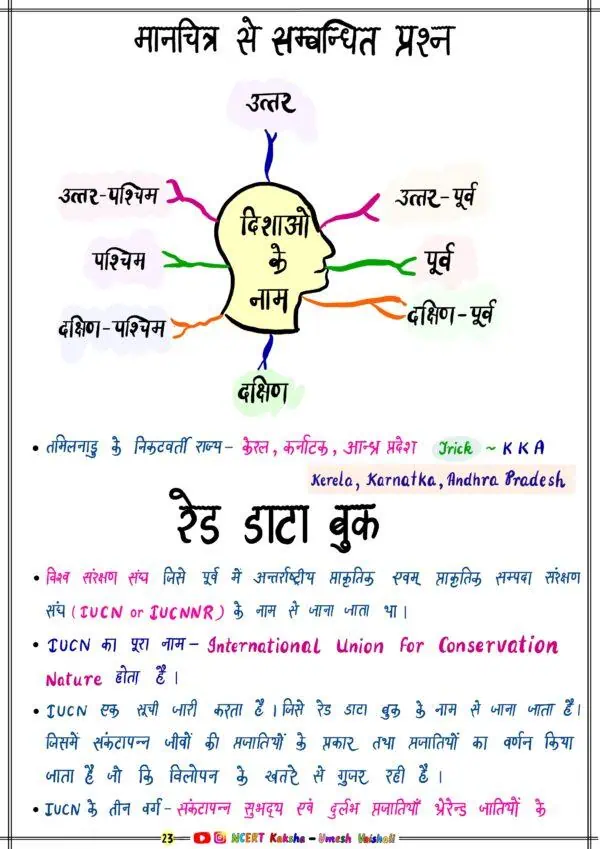 मानचित्र से सम्बन्धित प्रश्न
उत्तर
उत्तर-पश्चिम
उत्तर-पूर्व
दिशाओ
के
नाम
पश्चिम
पूर्व
दक्षिण-पश्चिम
दक्षिण-पूर्व
दक्षिण
• तमिलनाडु के निकटवर्ती राज्य- केरल, कर्नाटक, आन्ध्र प्रदेश Trick ~ K K A
Kerela, Karnatka, Andhra Pradesh
रेड डाटा बुक
• विश्व संरक्षण संघ जिसे पूर्व में अन्तर्राष्ट्रीय प्राकृतिक एवम् प्राकृतिक सम्पदा संरक्षण
संघ (IUCN or IUCNNR) के नाम से जाना जाता था।
• IUCN का पूरा नाम- International Union for Conservation
Nature होता है।
• IUCN एक सूची जारी करता है। जिसे रेड डाटा बुक के नाम से जाना जाता है।
जिसमें संकटापन्न जीवों की प्रजातियों के प्रकार तथा प्रजातियों का वर्णन किया
जाता है जो कि विलोपन के खतरे से गुजर रही है।
• IUCN के तीन वर्ग- संकटापन्न सुभद्य एवं दुर्लभ प्रजातियाँ थ्रेरेन्ड जातियों के
23 NCERT Kaksha - Umesh Vaishali